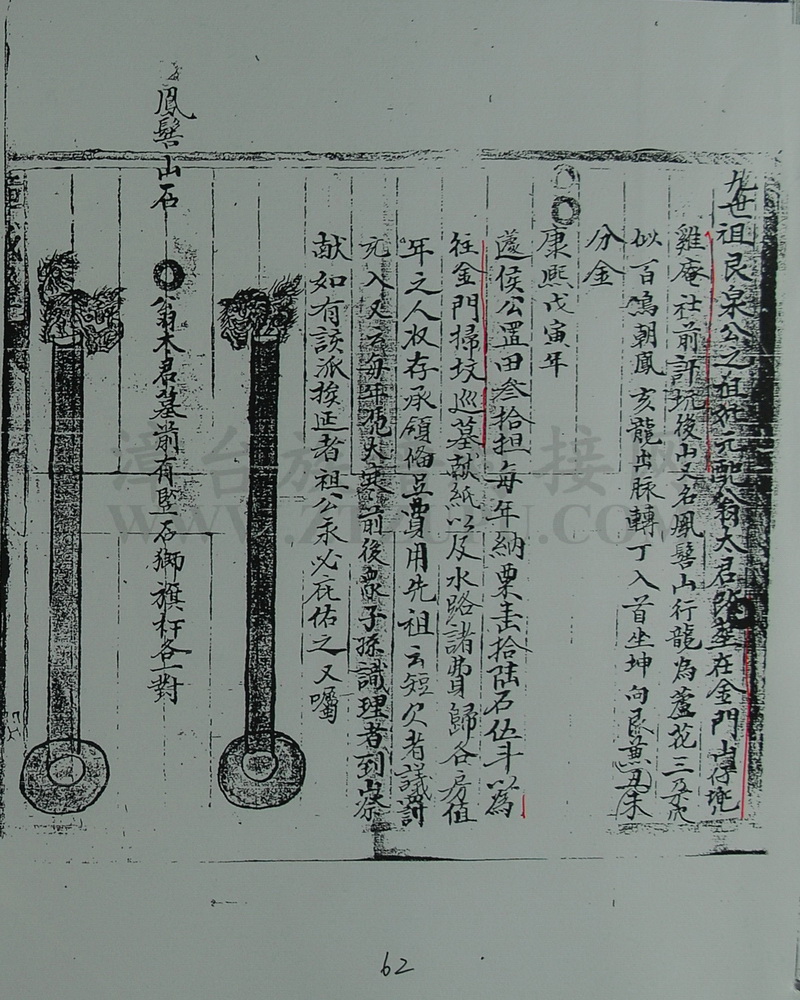 九世祖良泉公之祖妣元配翁太君墳塋在金門山仔兜
雞庵社前許坑後山又名鳳髻山行龍為蘆花三及穴
似百鳥朝鳳亥龍出脉轉丁入首坐坤向艮兼丑未
分金
康熙戊寅年
遠侯公置田叁拾担每年納粟壹拾陆石伍斗以為
往金門掃墳巡墓献紙以及水路諸費歸各房值
年之人收存承領倘公費用先祖云短欠者議罰
充入又云每年茔大寒前後眾子孫識理者到此祭
献如有該派挨延者祖公永必庇佑之又囑
翁太君墓前有竪石獅旗杆各一對
鳳髻山石
漳台族 接
62